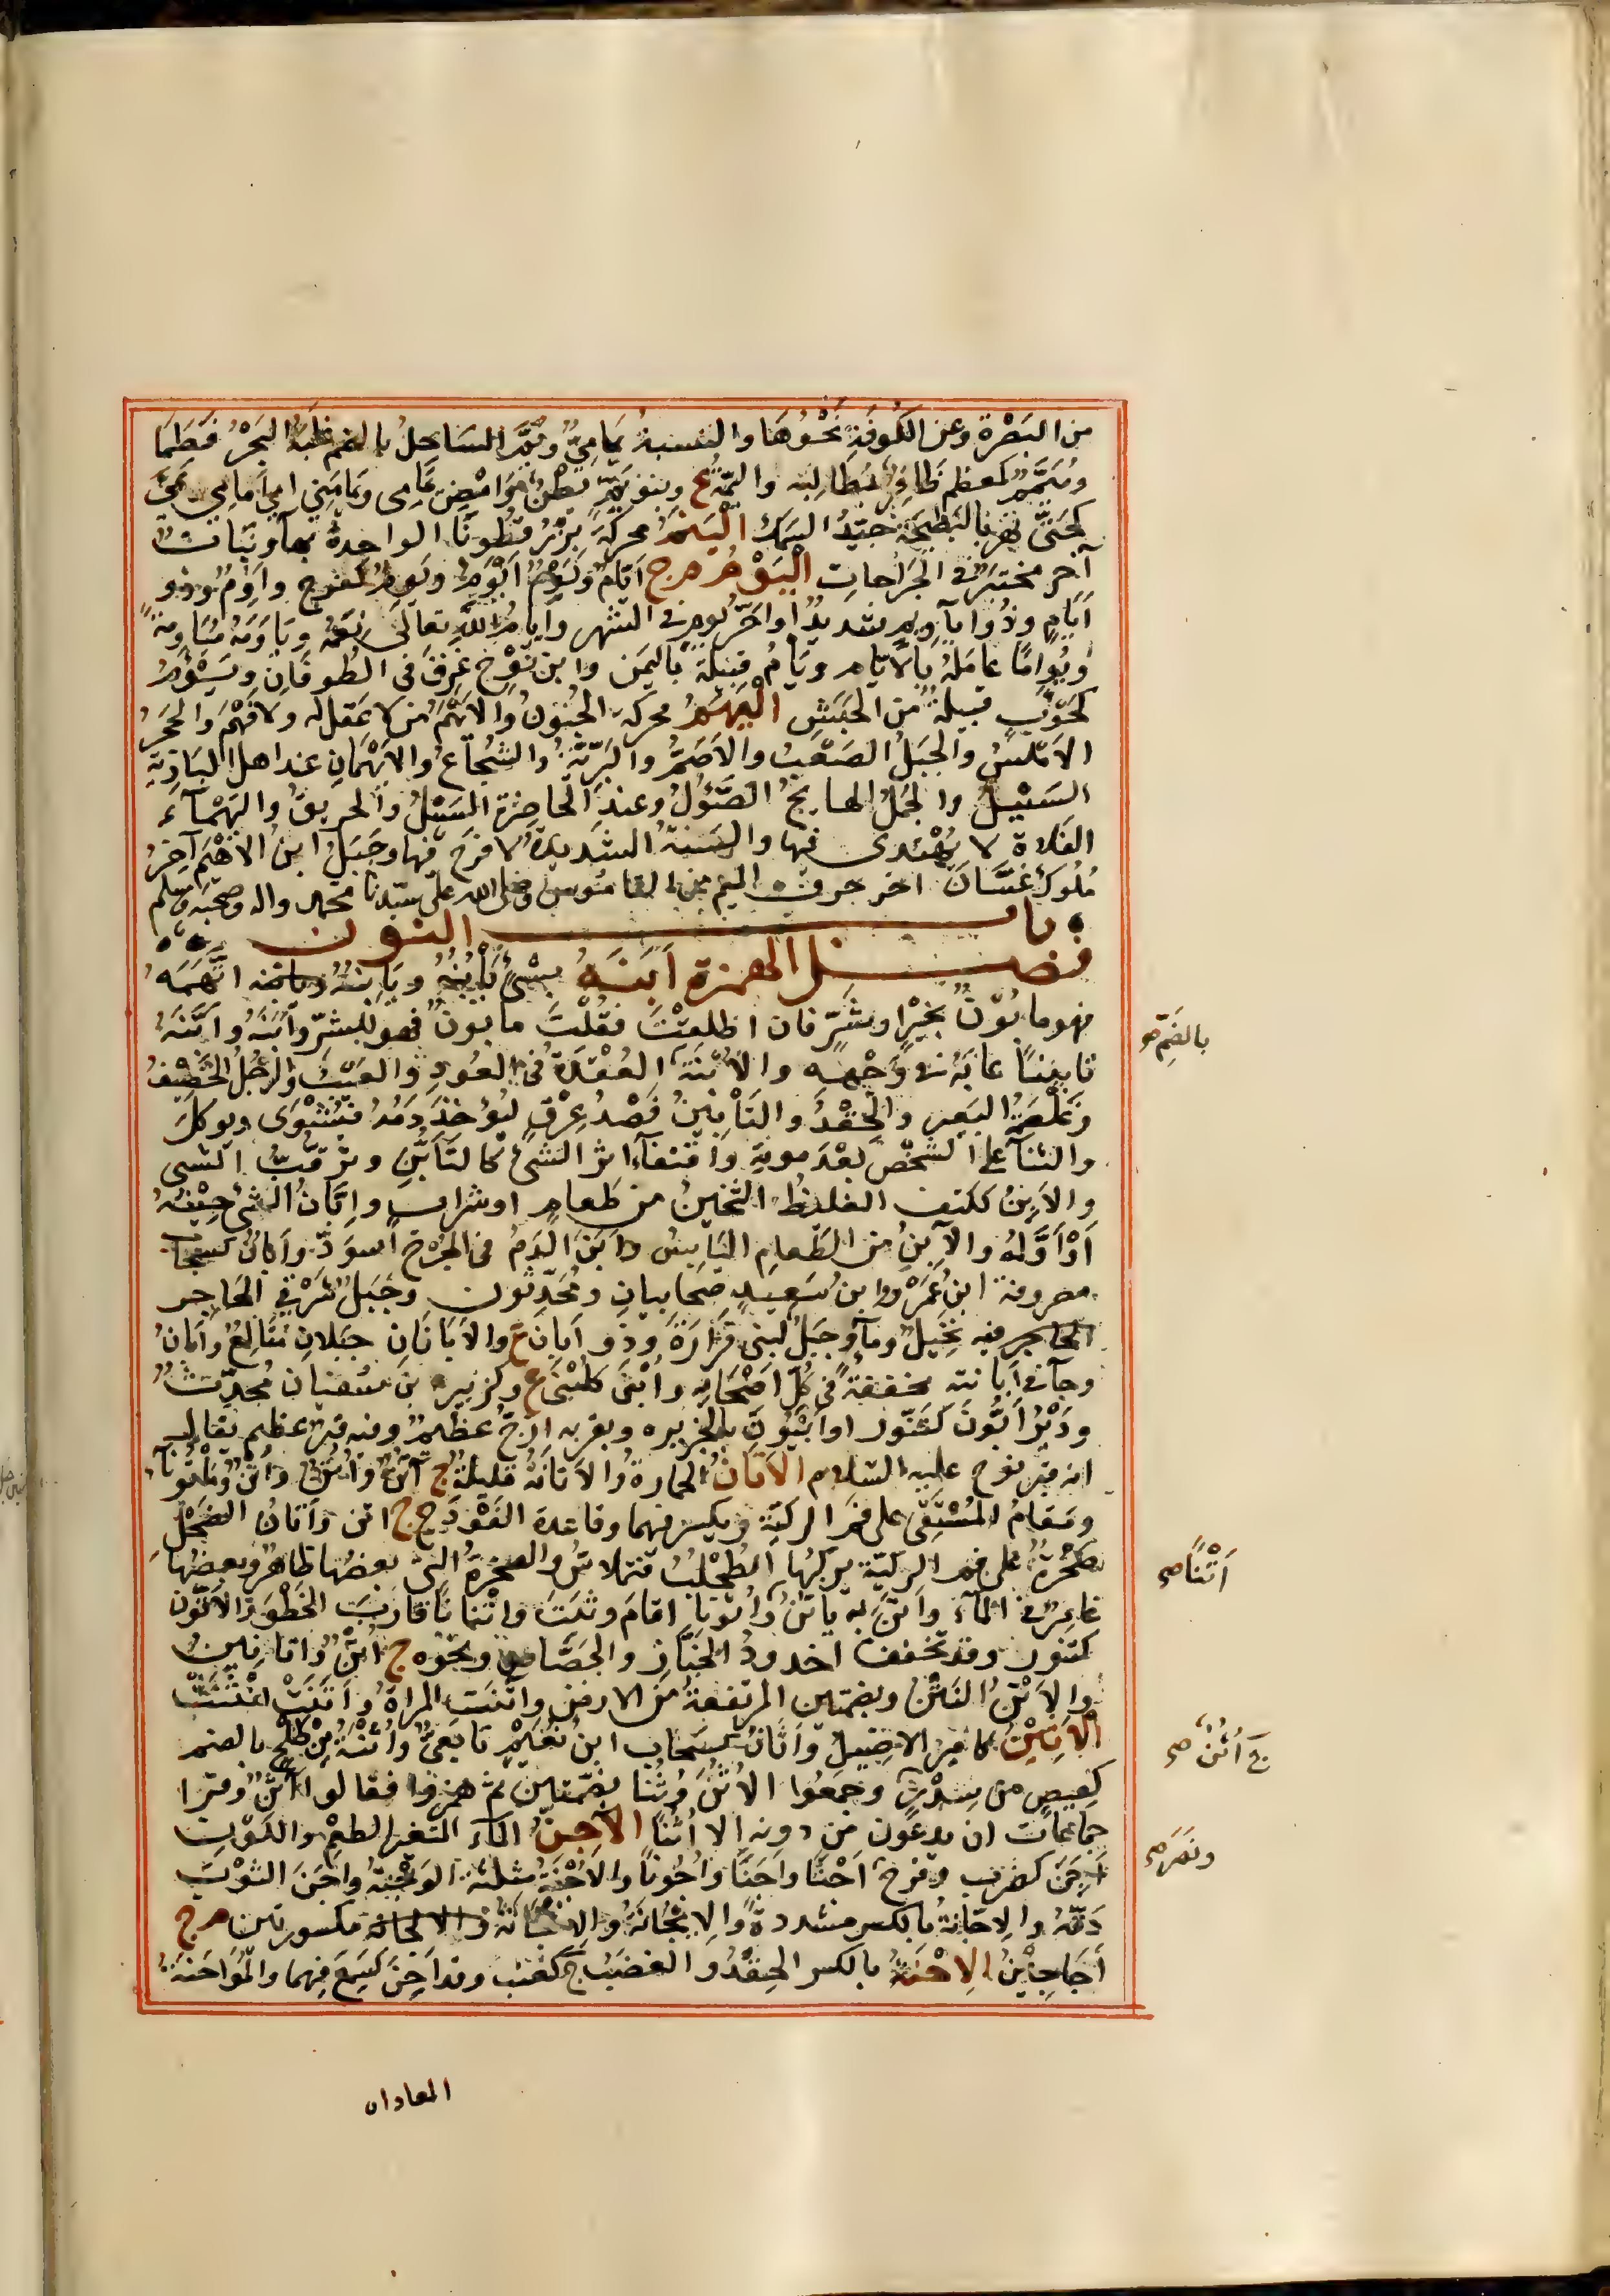 من البَصْرة وعن الكُوفَةِ نَحْوُهَا والنسبةُ يَمَامِيٌّ ويُمَّ السَاحِلُ بالضم غلَبَهُ البَحْرُ فَطَمَا
ومُيَمَّمٌ كمعظم ظَافِرٌ بمَطَالِبِه واليَمَّةُ ع وبنو يَمٍّ بَطْنٌ
كحَتَّى نهر بالبَطيحَةِ جَيّدُ السَمَك اليَنَمُ محركةً بِزْرُ قَطُونَا الواحِدةُ بهآء ونَبَاتٌ
آخر مختبَرٌ في الجَرَاحاتِ اليَوْمُ م ج أيّام ويَوْمٌ أَيْوَمُ ويَوِمٌ كفَرِحٍ وأَوِمٌ وذو
أيّامٍ وذُو أيآويم شديدٌ أو آخَرُ يوم في الشهر وأيامُ الله تعالى نِعَمُه ويَاوَمَهُ مُيَاوَمةً
ويُوامًا عامَلَهُ بالأيّام ويَامُ قبيلةٌ باليَمن وابن نُوْحٍ غَرِقَ في الطُوفَانِ ويَسْوُمُ
قبيلةٌ من الحَبَشِ اليَهَمُ محركة الجُنُونُ والأيْهَمُ من لا عَقْلَ له ولا فَهْمَ والحَجَرُ
الأمْلَسُ والجَبَلُ الصَعْبُ والأَصَمُّ والبَرِّيَّةُ والشُجَاعُ والأيْهَمَانِ عند أهل البَادِيَةِ
السَيْلُ والجَمَلُ الهايجُ الصَّؤُلُ وعند الحاضِرَةِ السَيْلُ والحريقُ واليَهْمَآءُ
الفَلاة لا يُهْتَدى فيها والسَنَةُ الشَديدَةُ لا فرَجَ فيها وجَبَلَةُ ابنُ الأيْهَم آخِرُ
مُلُوكِ غَسَّانَ اخر حرف الميم من القاموس وصلى الله على سيّدنا محمد واله وصحبه وسلم
باب النون
فصل الهمزة أبَنَهُ بشئٍ يَأْبُنُهُ ويَأْبِنُهُ اتَّهَمَهُ
فهو مابُوْنٌ بخَيْرٍ أو شَرٍّ فان اطلَقْتَ فقُلْتَ مابونٌ فهو للشرّ وأبَنَهُ وأبَّنَهُ
تابِينًا عابَهُ في وَجْهِه والأُبْنَةُ العُقْدَةُ في العُودِ والعَيْبُ والرَجُلُ الخَفِيْفُ
وغَلْصَمَةُ البَعيرِ والحِقْدُ والتَأْبِيْنُ فَصْدُ عِرْقٍ ليُؤْخَذَ دَمُه فيُشْوَى ويوكلَ
والثنآ على الشخْصِ بَعْدَ موتِه واقتفآء اثر الشئ كالتَأَبُّنِ وترَقُّبُ الشي
والأَبِنُ ككتف الغليظُ الثَخينُ من طَعامٍ أو شرابٍ وإبَّانُ الشئ حِيْنُهُ
أوْ أَوَّلُه والآبِنُ من الطَعامِ اليَابِسُ وأَبَنَ الدَمُ في الجُرْح اسوَدَّ وأَبَانٌ كسَحابٍ
مصروفة ابنُ عَمْرٍو وابنُ سَعيدٍ صَحابيانِ ومُحَدِّثون وجَبَلٌ شَرْقِيَّ الحَاجِر
الحاجر فيه نَخِيلٌ ومآءٌ وجَبَلٌ لبني فَزَارَةَ وذو أَبَانٍ ع والأبَانَانِ جبلانِ مُتَالِعٌ وأَبَانُ
وجآء في أبانته مخففة في كُلِّ أصْحَابِه وأُبْنَى كلُبْنَى ع وكزبير بن سفيان مُحدِّثٌ
ودَيْرُ أَبُّونَ كتَنُّورٍ أو أَبْيُونَ بالجزيره وبقربه أزَجٌ عظيمٌ وفيه قبرٌ عظيم يقالُ
انه قبر نوح عليه السلام الأَتَانُ الحمارةُ والأَتَانَةُ قليلةٌ ج آتُنٌ وأُتُنٌ وأُتْنٌ ومَأْتُونآءُ
ومَقامُ المُسْتَقِي على فم الركيّة ويكسر فيهما وقاعدة الفَوْدَج ج اتن وأَتانُ الضَحْلِ
صَخْرَةٌ على فم الركيّة يركبُها الطُحْلُبُ فتملاسُّ والصخرة التي بعضُها ظاهرٌ وبعضُها
غامِرٌ في المآء وأَتَنَ به يأتِنُ وأُتُونًا اقامَ وثبَتَ واتنانًا قارَبَ الخَطْوَ والأَتُّون
كتنور وقد تخفف اخدودُ الجَبَّار والجَصَّاص ونَحْوِه ج أُتُنٌ وأتاتينُ
والأَتْنُ اليَتْنُ وبضمتين المرتفعةُ من الارض وأتَنَتِ المرأةُ وآتَنَتْ أيْتَنَتْ
الأَثِيْنُ كامير الاصَيلُ وأَثَانٌ كسَحاب ابنُ نُعَيْمٍ تابَعيٌّ وأُثْنَةٌ من طَلْحٍ بالضم
كعِيصٍ من سِدْرٍ وجمَعُوا الأُثُنَ وُثُنًا بضمتين ثم همزوا فقالوا أُثُنٌ وقرا
جماعات ان يدعون من دونه الا أُثُنًا الآجِنُ المآء المتغير الطعْم والَلَوْنِ
أَجَنَ كضرب وفرح أَجْنًا وأَجَنًا وأُجُونًا والأُجْنَةُ مثلثة الوَجْنَةُ وأَجَنَ الثوْبَ
دَقَّهُ والإجّانةُ بالكسر مشددةً والإيْجَانَةُ والإنْجَانَةُ مكسورتين م ج
أَجَاجِيْنُ الإحْنَةُ بالكسر الحِقْدُ والغضَبُ ج كعنب وقد أَحِنَ كسَمِعَ فيهما والمُؤَاحَنَةُ
بالضَمّ صح
أَتْنًا صح
ج أُتُنٌ صح
ونَصَرَ صح
المعاداه